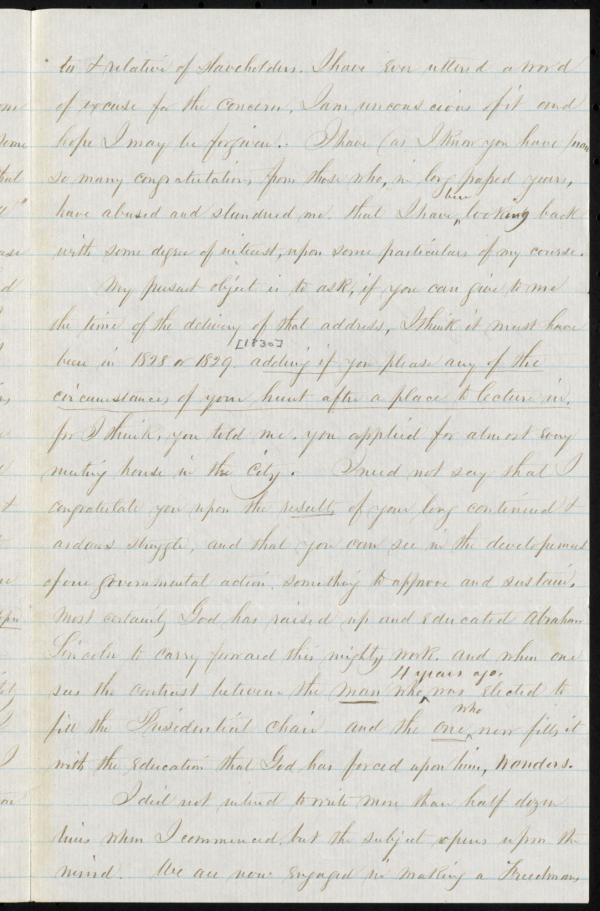 ter & relative of slaveholders. I have ever uttered a word
of excuse for the concern, I am unconscious of it and
hope I may be forgiven. I have (as I know you have from
so many congratulations from those who, in long passed years,
have abused and slandered me. that I have been looking back
with some degree of interest, upon some particulars of my course.
My present object is to ask, if you can give to me
the time of the delivery of that address, I think it must have
been in 1828 or 1829. [1830] adding if you please any of the
circumstances of your hunt after a place to lecture in.
for I think, you told me, you applied for almost every
meeting house in the city. I need not say that I
congratulate you upon the results of your long continued &
arduous struggle, and that you can see in the development
of our governmental action something to approve and sustain.
Most certainly God has raised up and educated Abraham
Lincoln to carry forward this mighty work. and when one
sees the contrast between the man who 4 years ago. was elected to
fill the Presidential chair and the one who now fills it
with the education that God has forced upon him, wonders.
I did not intend to write more than half dozen
lines when I commenced, but the subject opens upon the
mind. We are now engaged in making a Freedmans
ome
some
that
ase
d
&
I